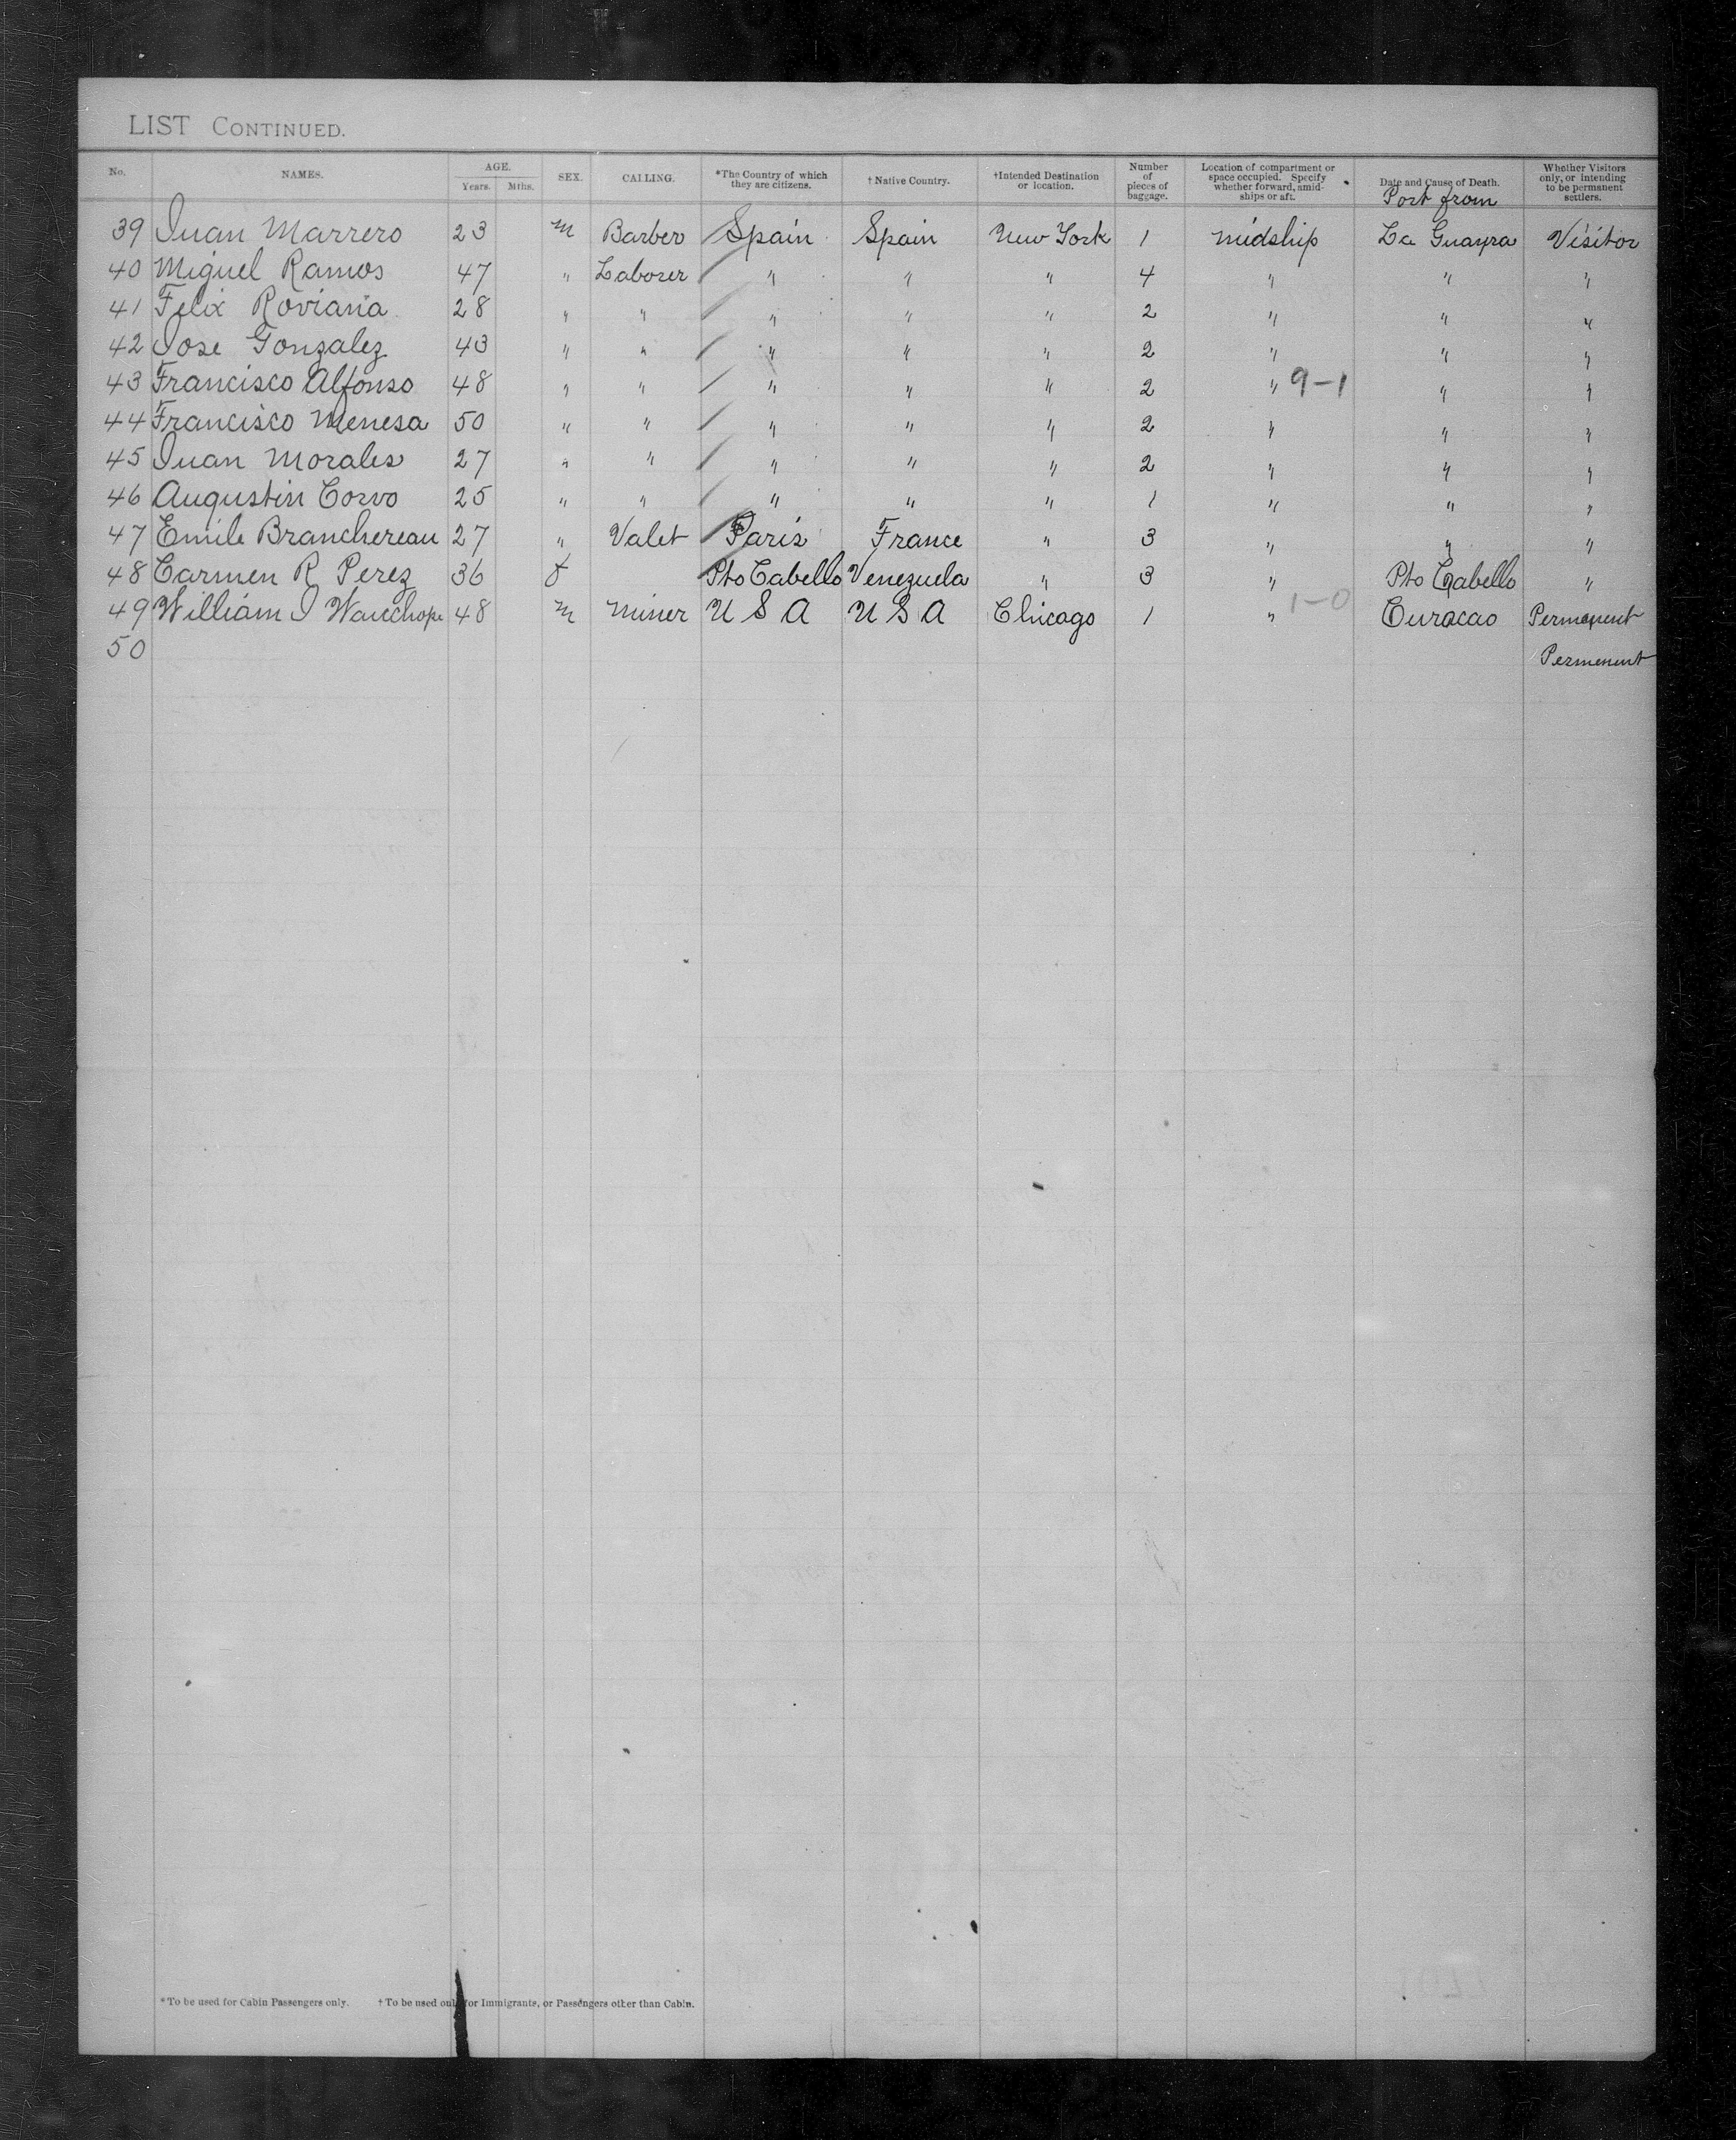 LIST CONTINUED.
No. NAMES. AGE. Years. Mths. SEX. CALLING. *The Country of which they are citizens. † Native Country. †Intended Destination or location. Number of pieces of baggage. Location of compartment or space occupied. Specify whether forward, amidships or aft. Date and Cause of Death. Port from Whether Visitors only, or intending to be permanent settlers.
39 Juan Marrero 23 m Barber Spain Spain New York 1 midship La Guayra Visitor
40 Miguel Ramos 47 " Laborer " " " 4 " " "
41 Felix Roviana 28 " " " " " 2 " " "
42 Jose Gonzalez 43 " " " " " 2 " " "
43 Francisco Alfonso 48 " " " " " 2 " 9-1 " "
44 Francisco Menesa 50 " " " " " 2 " " "
45 Juan Morales 27 " " " " " 2 " " "
46 Augustin Corvo 25 " " " " " 1 " " "
47 Emile Branchereau 27 " Valet Paris France " 3 " " "
48 Carmen R Perez 36 f Pto Cabello Venezuela " 3 " Pto Cabello "
49 William J Wauchope 48 m Miner U S A U S A Chicago 1 " 1-0 Curacao Permanent
50 Permenent
*To be used for Cabin Passengers only. †To be used only for Immigrants, or Passengers other than Cabin.